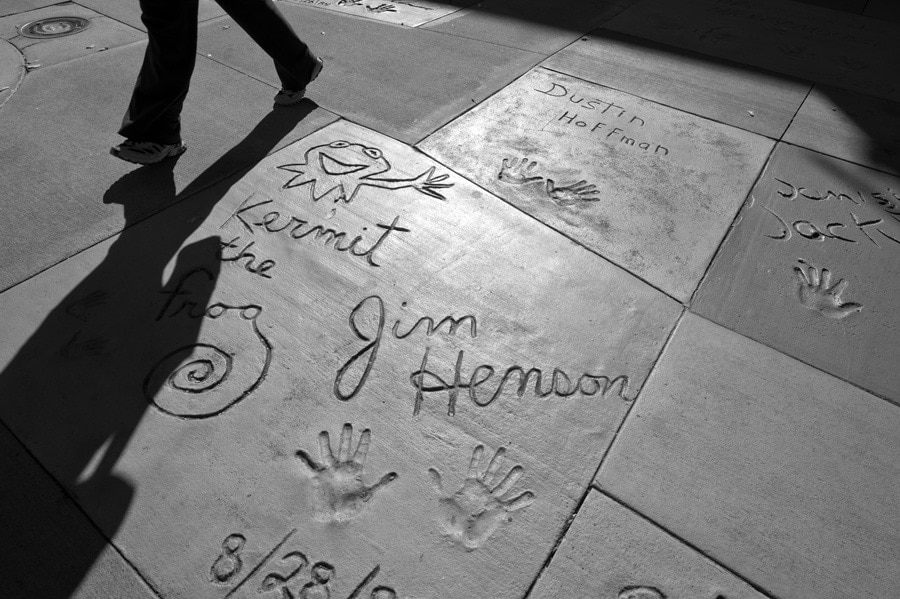 Dustin
Hoffman
Kermit
the
frog
Jim
Henson
Jack
8/28/